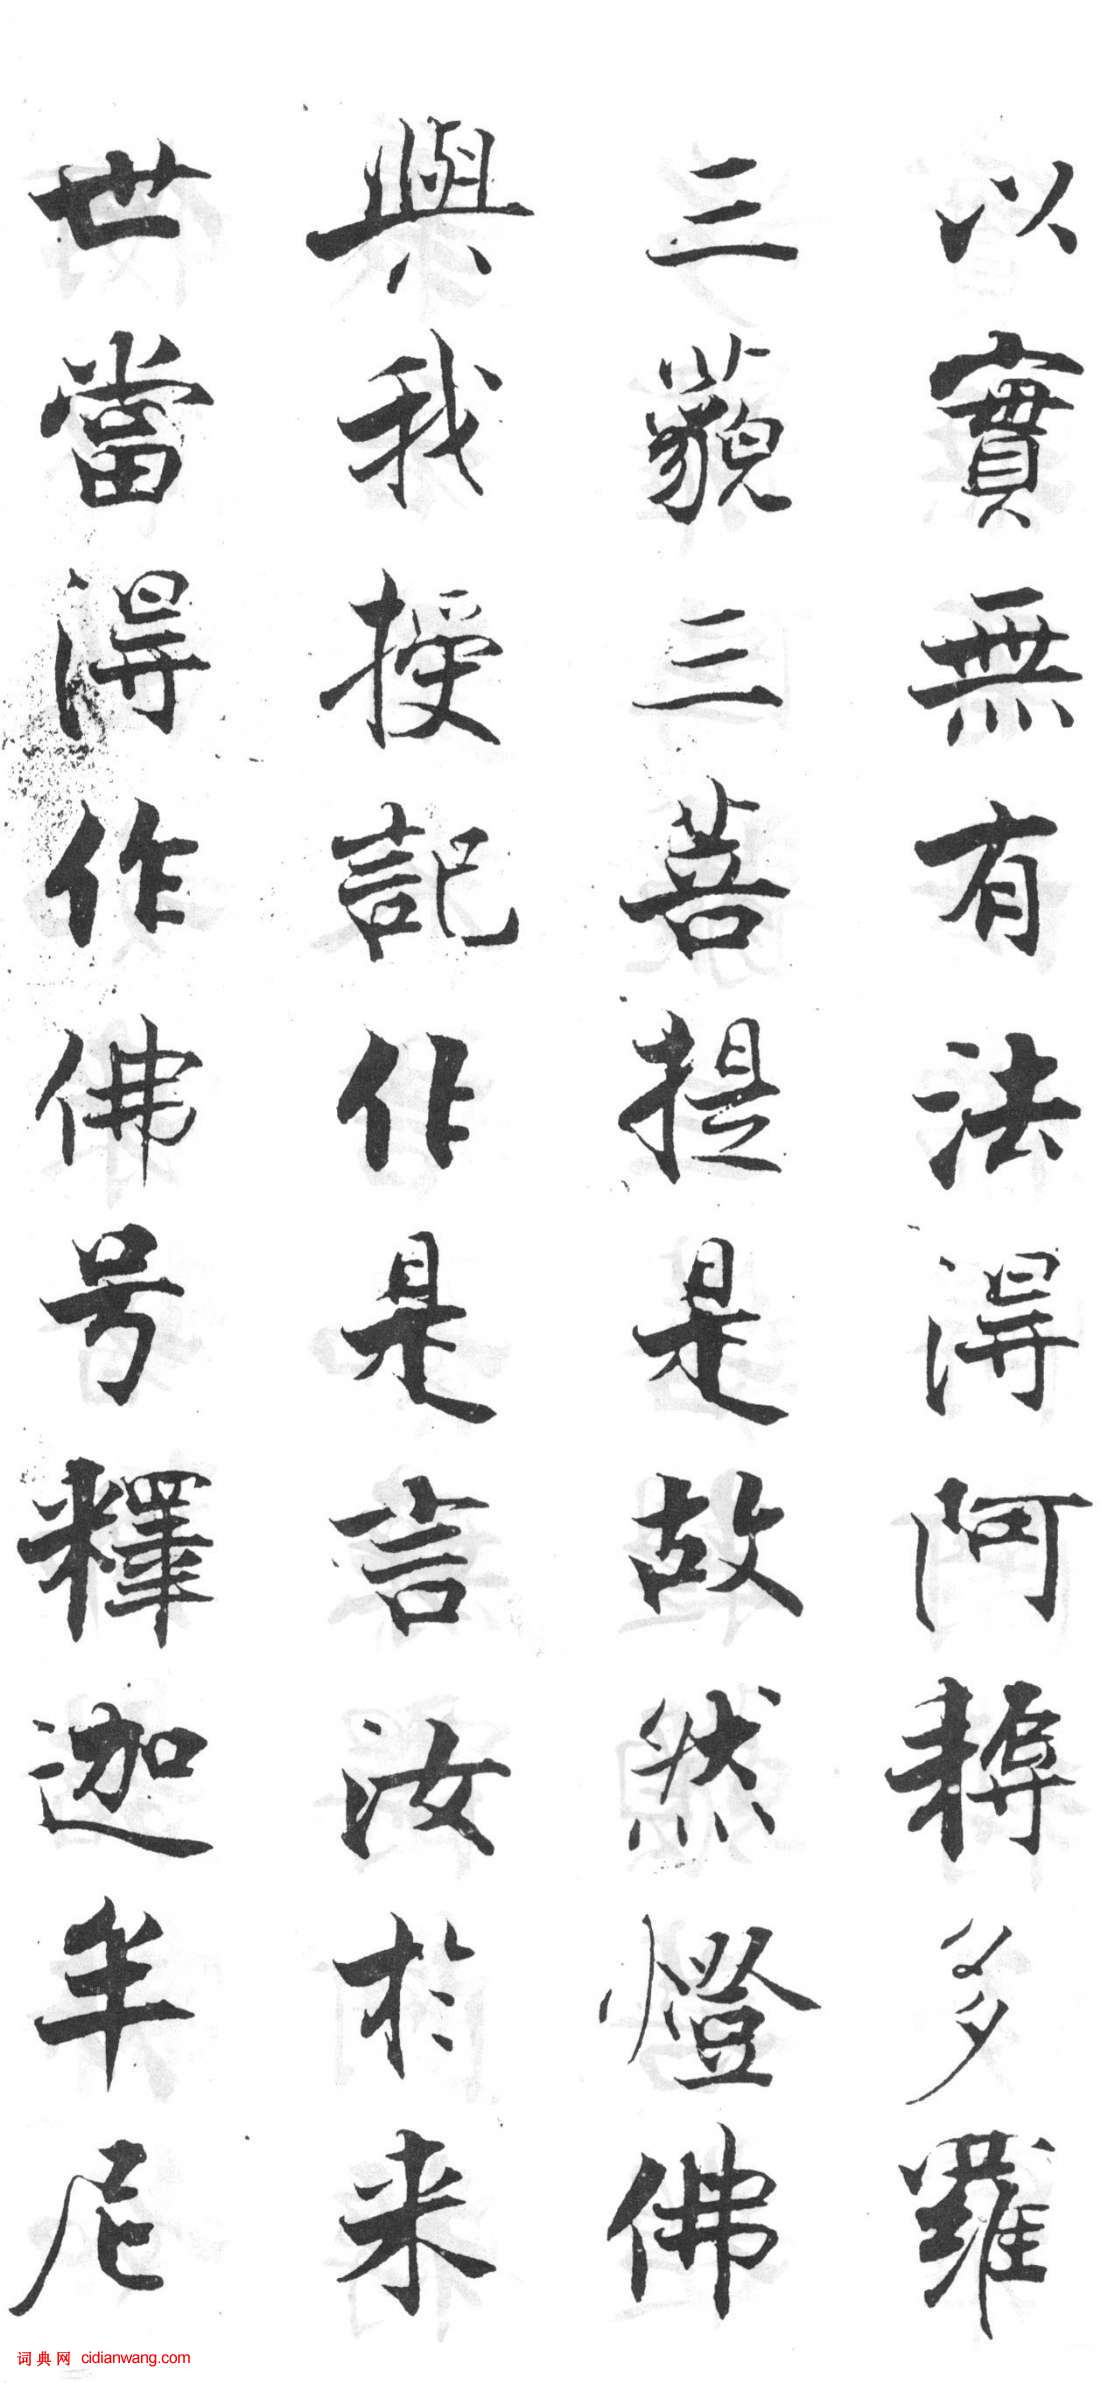 以實無有法得阿耨多羅
三藐三菩提是故然燈佛
與我授記作是言汝於来
世當得作佛号釋迦牟尼
词典网 cidianwang.com